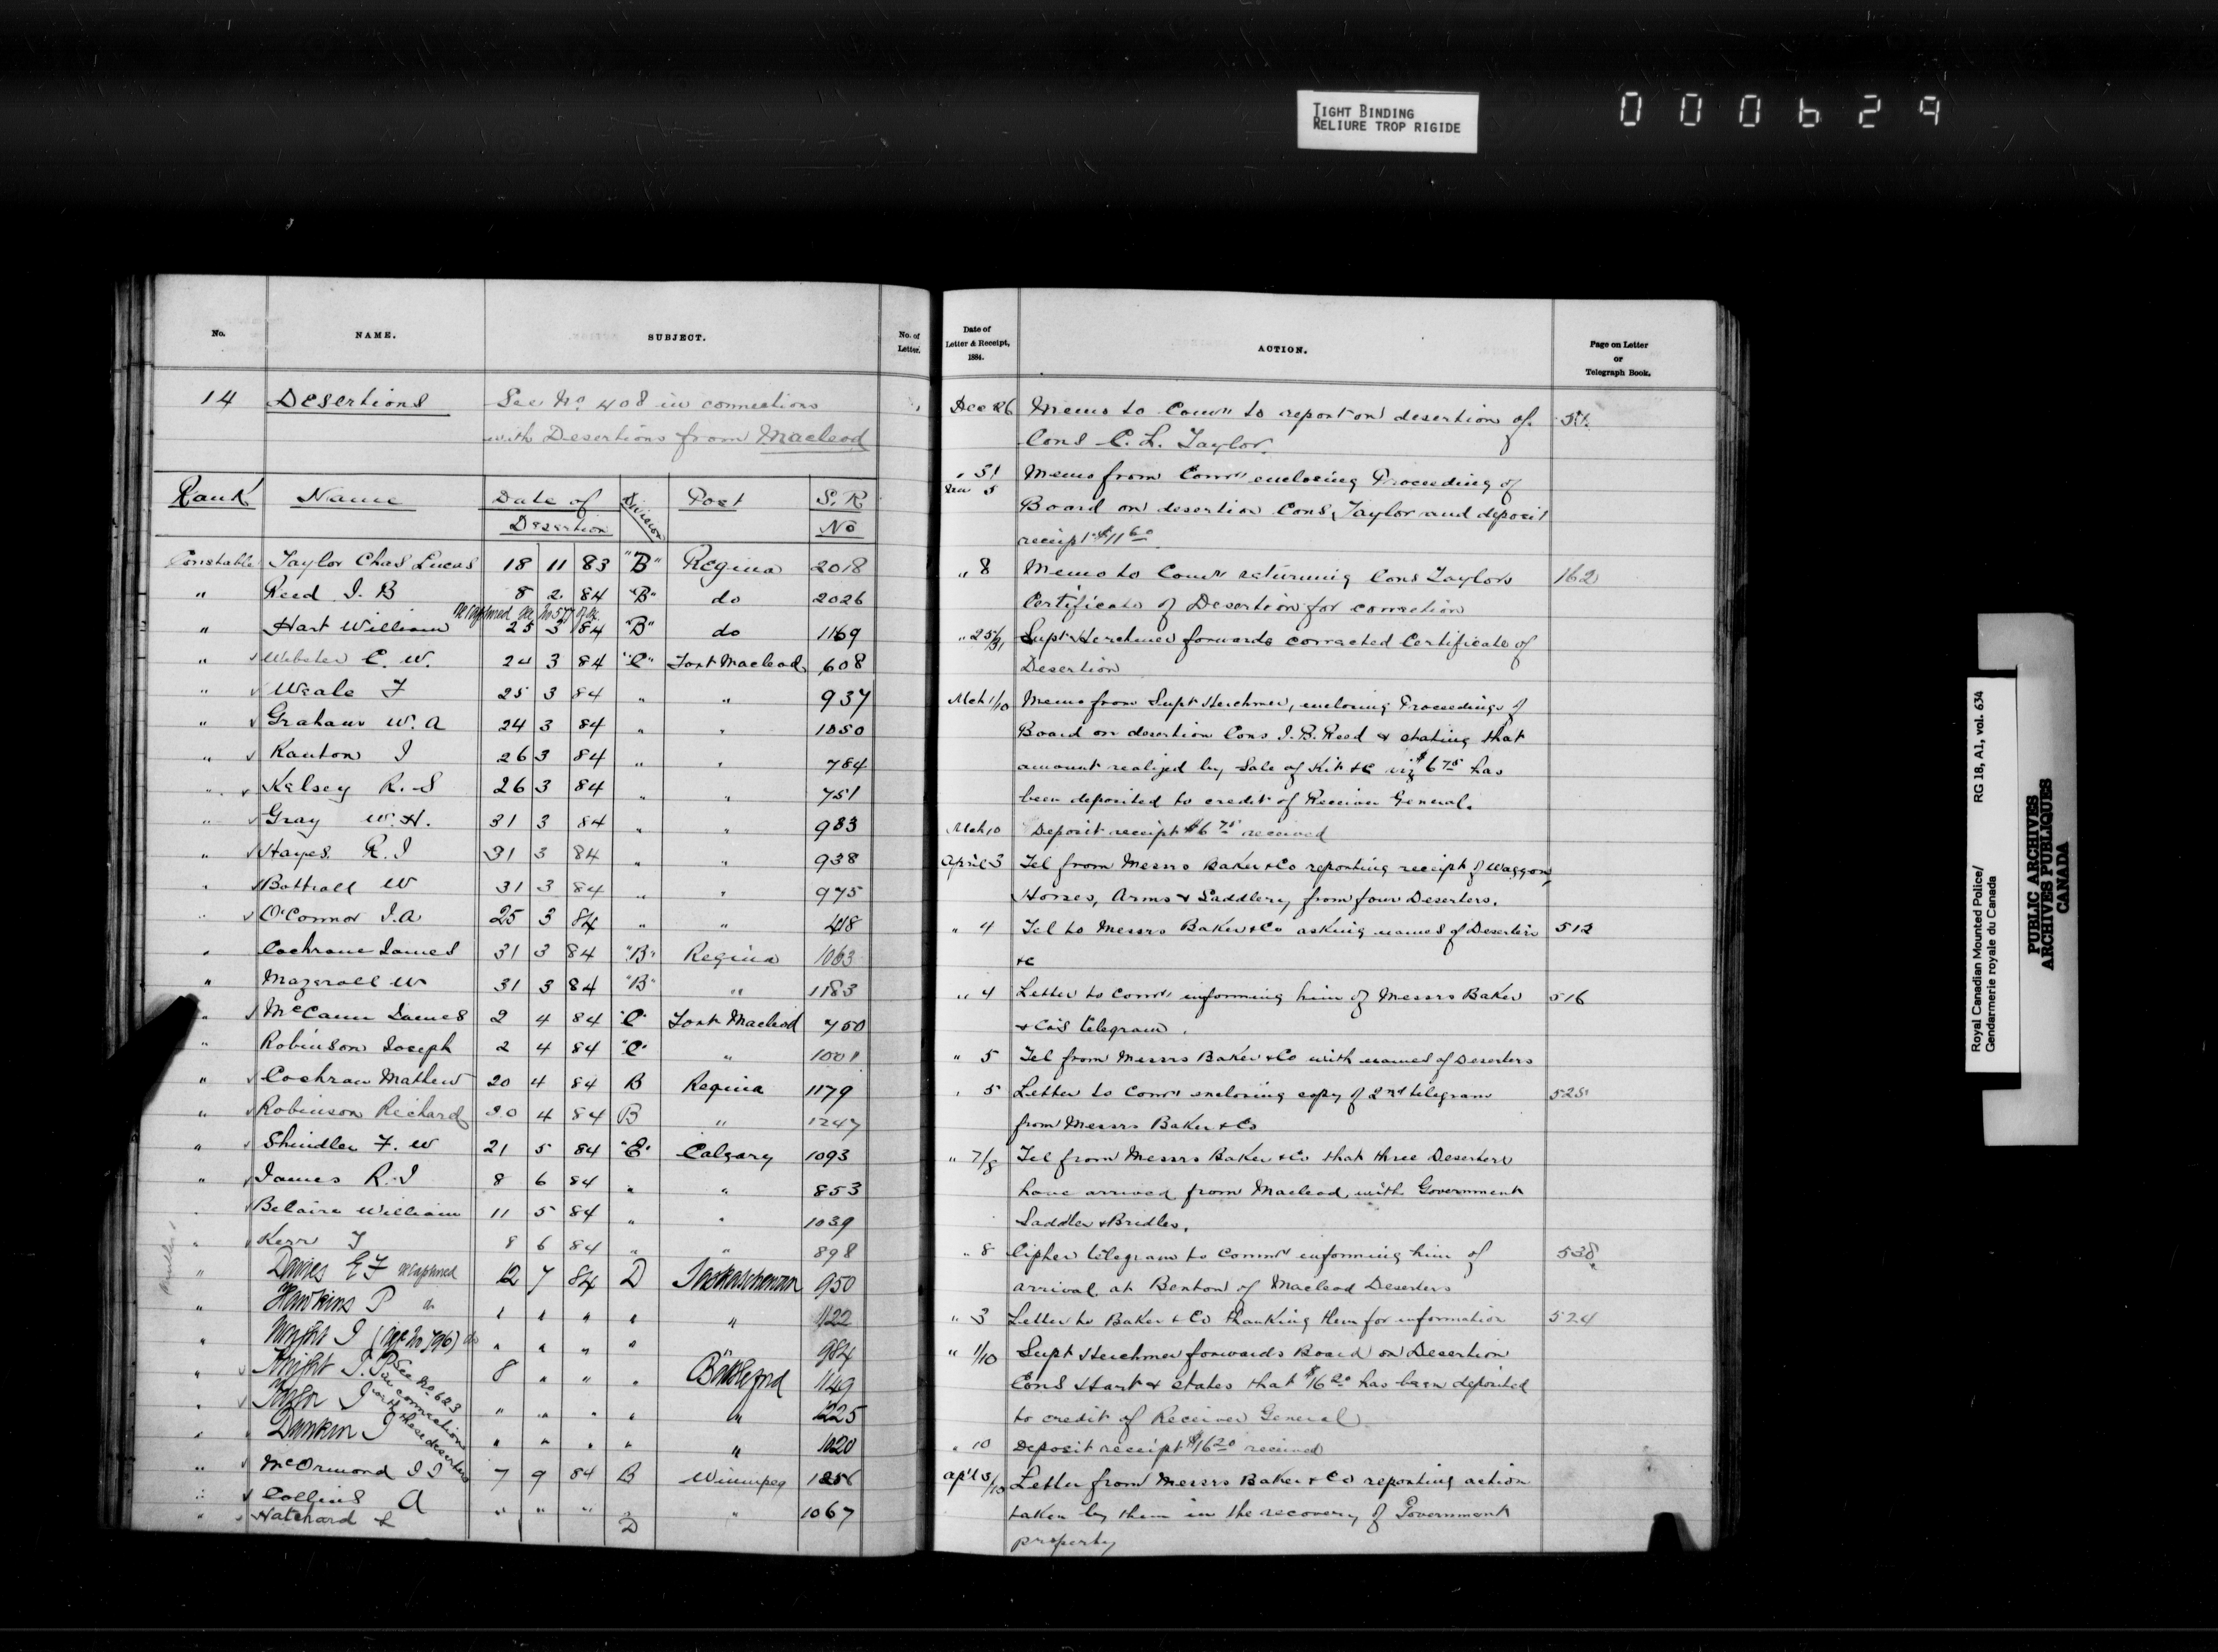 TIGHT BINDING
RELIURE TROP RIGIDE
000629
No. NAME. SUBJECT. No. of Letter.
14 Desertions See No 408 in connections
with Desertions from Macleod
Rank Name Date of Desertion Division Post S.R No
Constable Taylor Chas Lucas 18 11 83 "B" Regina 2018
" Reed J. B 8 2 84 "B" do 2026
" Hart William recaptured 25 3 84 "B" do 1169
" Webster C. W. 24 3 84 "C" Fort Macleod 608
" Weale F 25 3 84 " " 937
" Graham W. A 24 3 84 " " 1050
" Kanton J 26 3 84 " " 784
" Kelsey R. S 26 3 84 " " 751
" Gray W. H. 31 3 84 " " 983
" Hayes R. J 31 3 84 " " 938
" Bottrall W 31 3 84 " " 975
" O'Connor J. A 25 3 84 " " 418
" Cochrane James 31 3 84 "B" Regina 1063
" Mazerall W 31 3 84 "B" " 1183
" McCann James 2 4 84 "C" Fort Macleod 750
" Robinson Joseph 2 4 84 "C" " 1001
" Cochran Mathew 20 4 84 B Regina 1179
" Robinson Richard 20 4 84 B " 1247
" Shindler F. W 21 5 84 "E" Calgary 1093
" James R. J 8 6 84 " " 853
" Belaire William 11 5 84 " " 1039
" Kerr J 8 6 84 " " 898
" Davies E F recaptured 12 7 84 D Saskatchewan 950
" Hawkins P do " " " " " 1122
" Wright J (see No 796) do " " " " 984
" Knight J. P 8 " " " Battleford 1149
See No 623 in connection with these deserters
" J " " " " " 1225
" Dunkin J " " " " " 1020
" McOrmond J J 7 9 84 B Winnipeg 1256
" Collins A " " " " 1067
" Hatchard & D
Date of Letter & Receipt, 1884. ACTION. Page on Letter or Telegraph Book.
Dec 26 Memo to Comr to report on desertion of
Cons C. L. Taylor.
" 31 Memo from Comr enclosing Proceeding of
Jan 5
Board on desertion Cons Taylor and deposit
receipt $11 60
" 8 Memo to Comr returning Cons Taylors 162
Certificate of Desertion for correction
" 25/31 Supt Herchmer forwards corrected Certificate of
Desertion
Mch 1/10 Memo from Supt Herchmer, enclosing Proceedings of
Board on desertion Cons J. B. Reed & stating that
amount realized by Sale of Kit &c viz $6 75 has
been deposited to credit of Receiver General.
Mch 10 Deposit receipt $6 75 received
April 3 Tel from Messrs Baker & Co reporting receipt of Waggon,
Horses, Arms & Saddlery, from four Deserters.
" 4 Tel to Messrs Baker & Co asking names of Deserters 512
&c
" 4 Letter to Comr informing him of Messrs Baker 516
& Co's telegram.
" 5 Tel from Messrs Baker & Co with names of Deserters
" 5 Letter to Comr enclosing copy of 2nd telegram 525
from Messrs Baker & Co
" 7/8 Tel from Messrs Baker & Co that three Deserters
have arrived from Macleod, with Government
Saddles & Bridles.
" 8 Cipher telegram to Comr informing him of 538
arrival at Benton of Macleod Deserters
" 3 Letter to Baker & Co thanking them for information 524
" 1/10 Supt Herchmer forwards Board on Desertion
Cons Hart & states that $16 20 has been deposited
to credit of Receiver General.
" 10 Deposit receipt $16 20 received
Letter from Messrs Baker & Co reporting action
taken by them in the recovery of Government
property
Royal Canadian Mounted Police/
Gendarmerie royale du Canada
RG 18, A1, vol. 634
PUBLIC ARCHIVES
ARCHIVES PUBLIQUES
CANADA